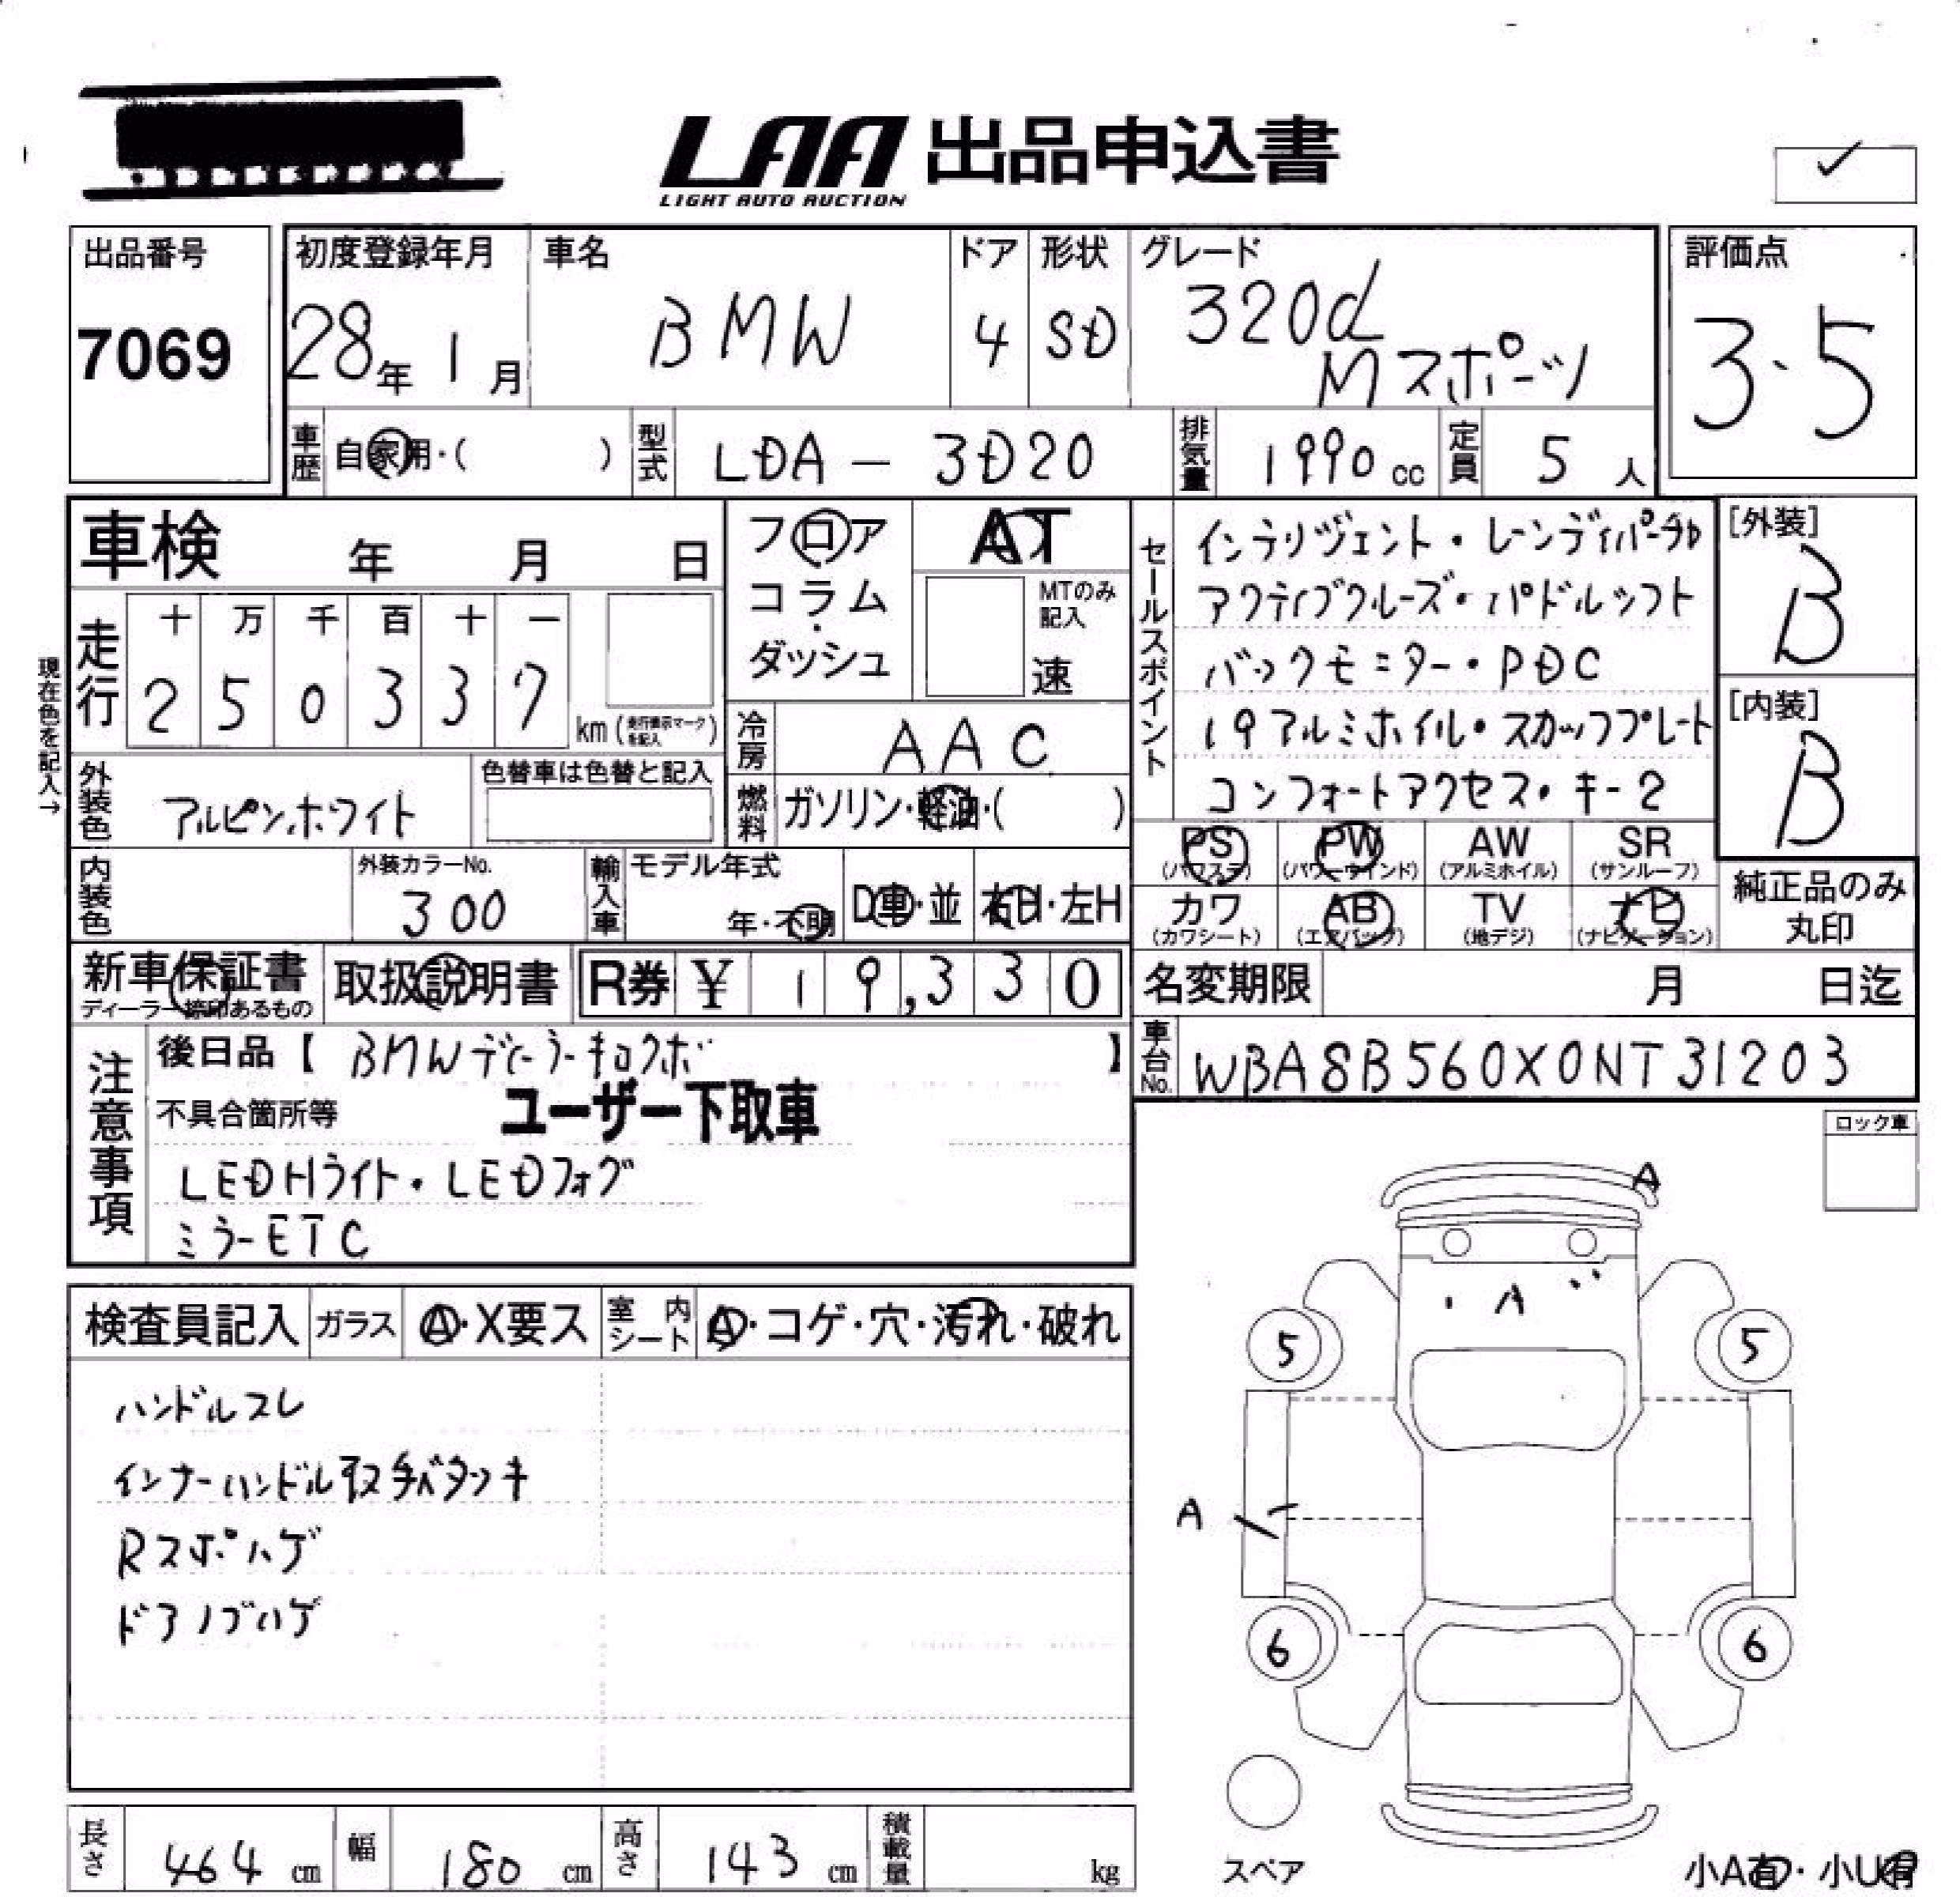 LAA 出品申込書
LIGHT AUTO AUCTION
出品番号
7069
初度登録年月
28年 1月
車名
BMW
ドア
4
形状
SD
グレード
320d
Mスポーツ
評価点
3.5
車歴 自家用・( )
型式 LDA - 3D20
排気量 1990 cc
定員 5 人
車検 年 月 日
フロア
コラム
・
ダッシュ
AT
MTのみ
記入
速
走行
十 万 千 百 十 一
2 5 0 3 3 7
km (走行表示マークを記入)
現在色を記入→
冷房 AAC
外装色 アルピンホワイト
色替車は色替と記入
燃料 ガソリン・軽油・( )
内装色
外装カラーNo.
300
輸入車
モデル年式
年・不明
D車・並
右H・左H
セールスポイント
インテリジェント・レーンディパーチャ
アクティブクルーズ・パドルシフト
バックモニター・PDC
19アルミホイル・スカッフプレート
コンフォートアクセス・キー2
[外装]
B
[内装]
B
PS PW AW SR
(パワステ) (パワーウインド) (アルミホイル) (サンルーフ)
カワ AB TV ナビ
(カワシート) (エアバッグ) (地デジ) (ナビゲーション)
純正品のみ
丸印
新車保証書
ディーラー捺印あるもの
取扱説明書
R券 ¥ 19,330
名変期限 月 日迄
車台No. WBA8B560X0NT31203
注意事項
後日品【 BMWディーラーキロクボ 】
ユーザー下取車
不具合箇所等
LEDHライト・LEDフォグ
ミラーETC
ロック車
検査員記入
ガラス A・X要ス
室内シート A・コゲ・穴・汚れ・破れ
ハンドルスレ
インナーハンドル取手ベタツキ
Rスポハゲ
ドアノブハゲ
A
A
5
5
A
6
6
スペア
小A有・小U有
長さ 464 cm
幅 180 cm
高さ 143 cm
積載量 kg